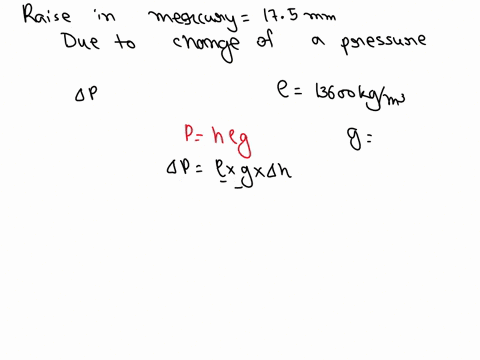 Raise in mercury = 17.5 mm
Due to change of a pressure
ΔP ρ = 13600 kg/m³
P = hρg g =
ΔP = ρ × g × Δh